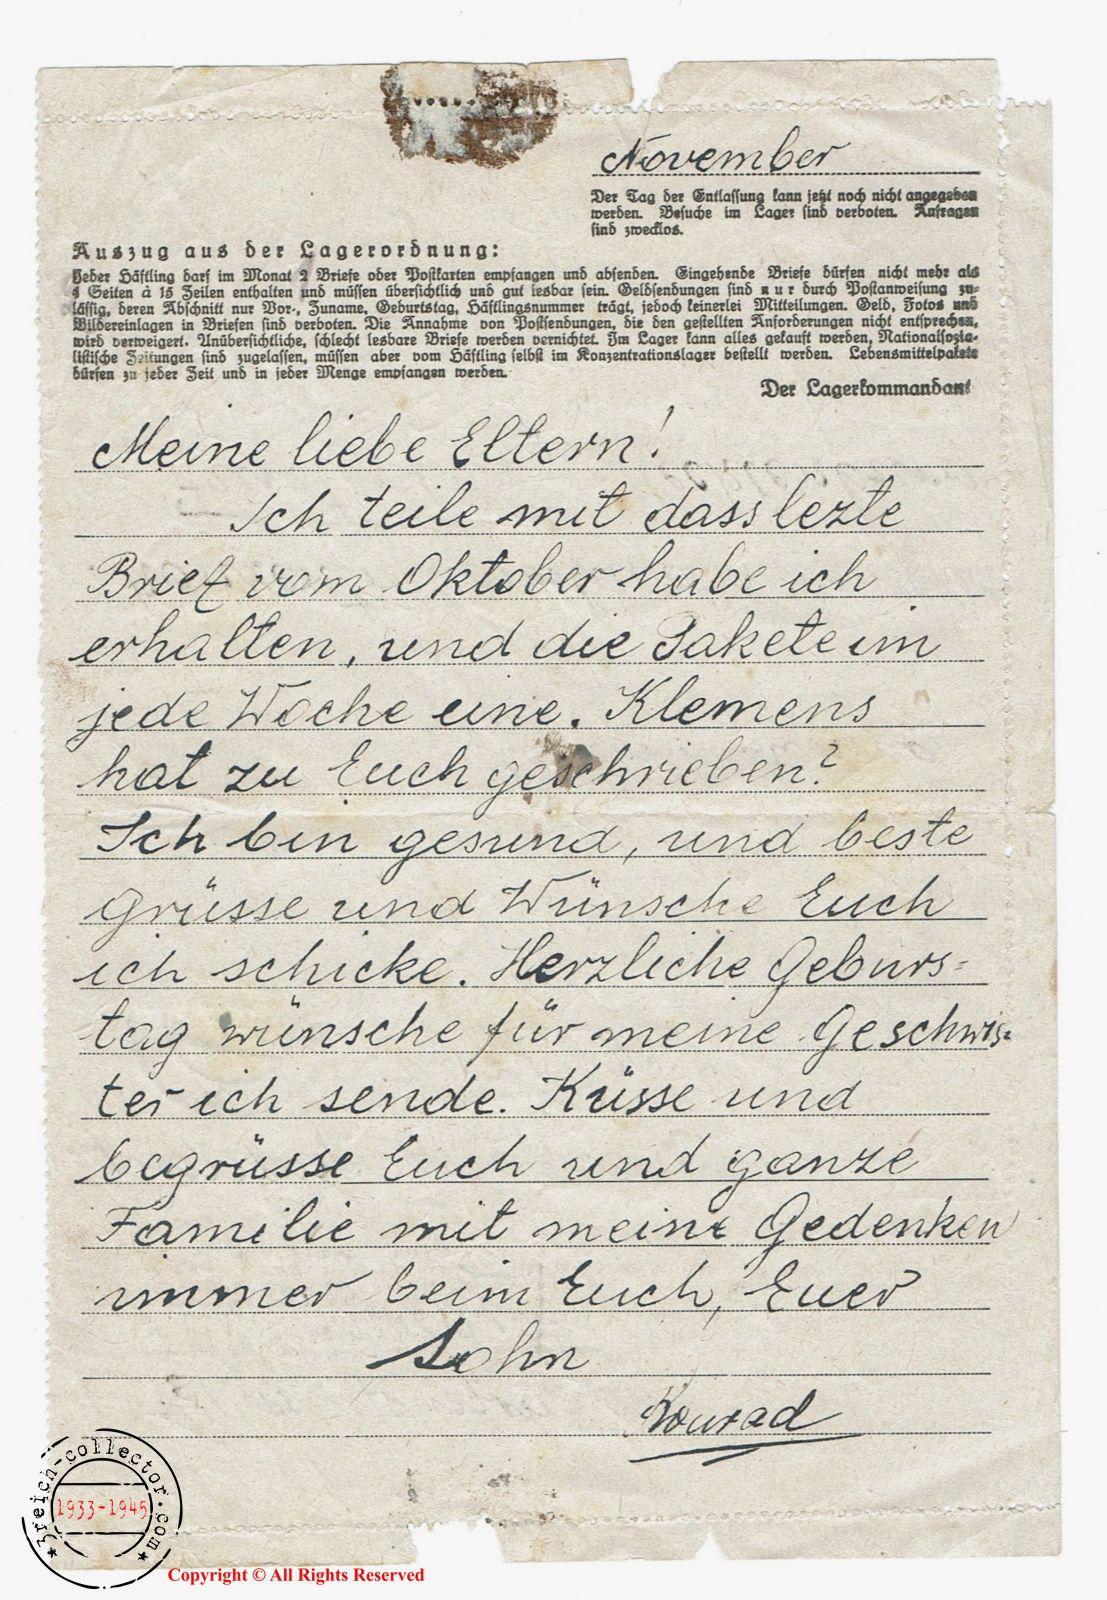 November
Der Tag der Entlassung kann jetzt noch nicht angegeben
werden. Besuche im Lager sind verboten. Anfragen
sind zwecklos.
Auszug aus der Lagerordnung:
Jeder Häftling darf im Monat 2 Briefe oder Postkarten empfangen und absenden. Eingehende Briefe dürfen nicht mehr als
4 Seiten à 15 Zeilen enthalten und müssen übersichtlich und gut lesbar sein. Geldsendungen sind nur durch Postanweisung zu-
lässig, deren Abschnitt nur Vor-, Zuname, Geburtstag, Häftlingsnummer trägt, jedoch keinerlei Mitteilungen. Geld, Fotos und
Bildereinlagen in Briefen sind verboten. Die Annahme von Postsendungen, die den gestellten Anforderungen nicht entsprechen,
wird verweigert. Unübersichtliche, schlecht lesbare Briefe werden vernichtet. Im Lager kann alles gekauft werden, Nationalsozia-
listische Zeitungen sind zugelassen, müssen aber vom Häftling selbst im Konzentrationslager bestellt werden. Lebensmittelpakete
dürfen zu jeder Zeit und in jeder Menge empfangen werden.
Der Lagerkommandant
Meine liebe Eltern!
Ich teile mit dass lezte
Brief vom Oktober habe ich
erhalten, und die Pakete im
jede Woche eine. Klemens
hat zu Euch geschrieben?
Ich bin gesund, und beste
Grüsse und Wünsche Euch
ich schicke. Herzliche Geburs-
tag wünsche für meine Geschwis-
ter ich sende. Küsse und
begrüsse Euch und ganze
Familie mit meine Gedenken
immer beim Euch, Euer
Sohn
Konrad
3reich-collector.com
1933-1945
Copyright © All Rights Reserved